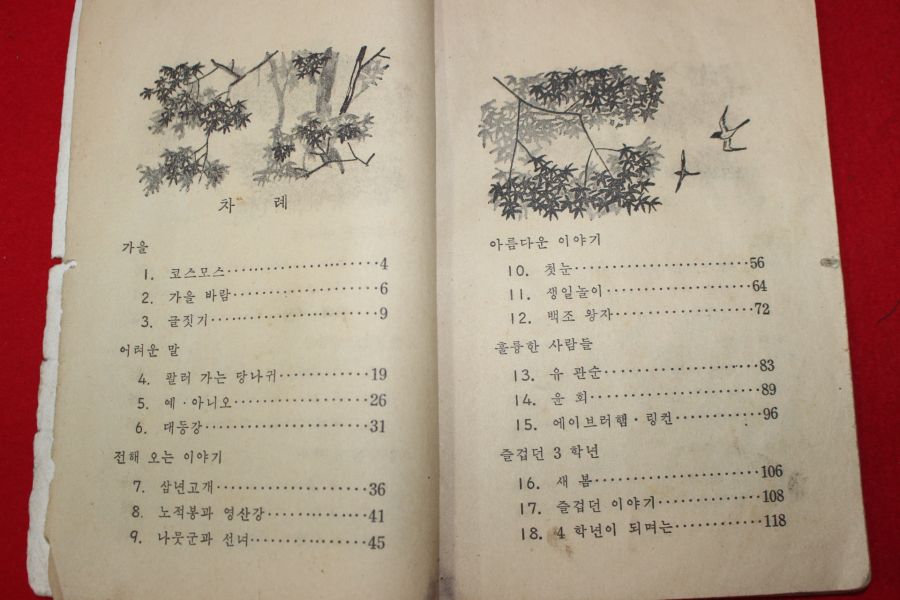 차 례
가을
1. 코스모스 4
2. 가을 바람 6
3. 글짓기 9
어려운 말
4. 팔러 가는 당나귀 19
5. 예·아니오 26
6. 대등강 31
전해 오는 이야기
7. 삼년고개 36
8. 노적봉과 영산강 41
9. 나뭇군과 선녀 45
아름다운 이야기
10. 첫눈 56
11. 생일놀이 64
12. 백조 왕자 72
훌륭한 사람들
13. 유 관순 83
14. 윤 회 89
15. 에이브러햄·링컨 96
즐겁던 3 학년
16. 새 봄 106
17. 즐겁던 이야기 108
18. 4 학년이 되며는 118